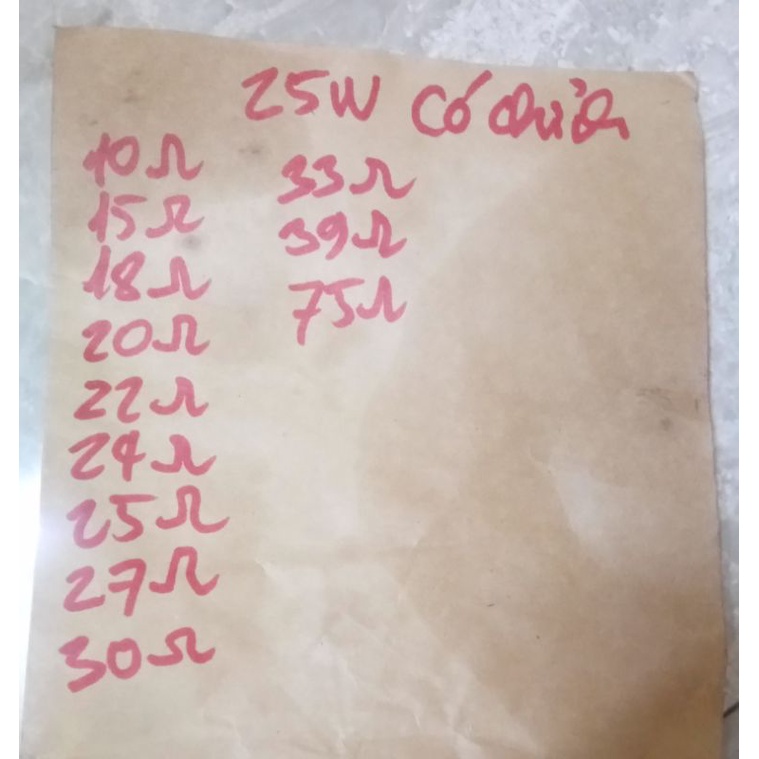 25W có chỉnh
10Ω
15Ω
18Ω
20Ω
22Ω
24Ω
25Ω
27Ω
30Ω
33Ω
39Ω
75Ω